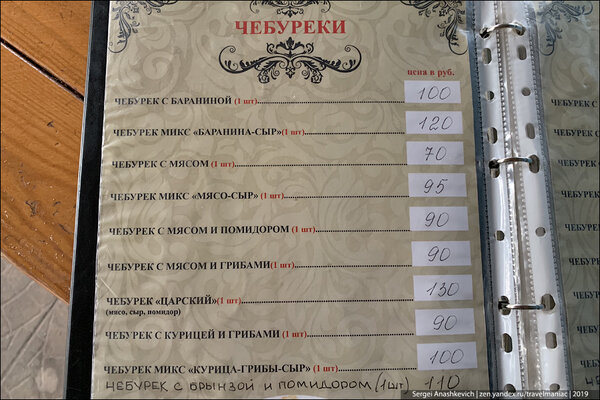 ЧЕБУРЕКИ
цена в руб.
ЧЕБУРЕК С БАРАНИНОЙ (1 шт) 100
ЧЕБУРЕК МИКС «БАРАНИНА-СЫР»(1 шт) 120
ЧЕБУРЕК С МЯСОМ (1 шт) 70
ЧЕБУРЕК МИКС «МЯСО-СЫР» (1 шт) 95
ЧЕБУРЕК С МЯСОМ И ПОМИДОРОМ (1 шт) 90
ЧЕБУРЕК С МЯСОМ И ГРИБАМИ(1 шт) 90
ЧЕБУРЕК «ЦАРСКИЙ»(1 шт) 130
(мясо, сыр, помидор)
ЧЕБУРЕК С КУРИЦЕЙ И ГРИБАМИ (1 шт) 90
ЧЕБУРЕК МИКС «КУРИЦА-ГРИБЫ-СЫР» (1 шт) 100
ЧЕБУРЕК С БРЫНЗОЙ И ПОМИДОРОМ (1шт) 110
Sergei Anashkevich | zen.yandex.ru/travelmaniac | 2019